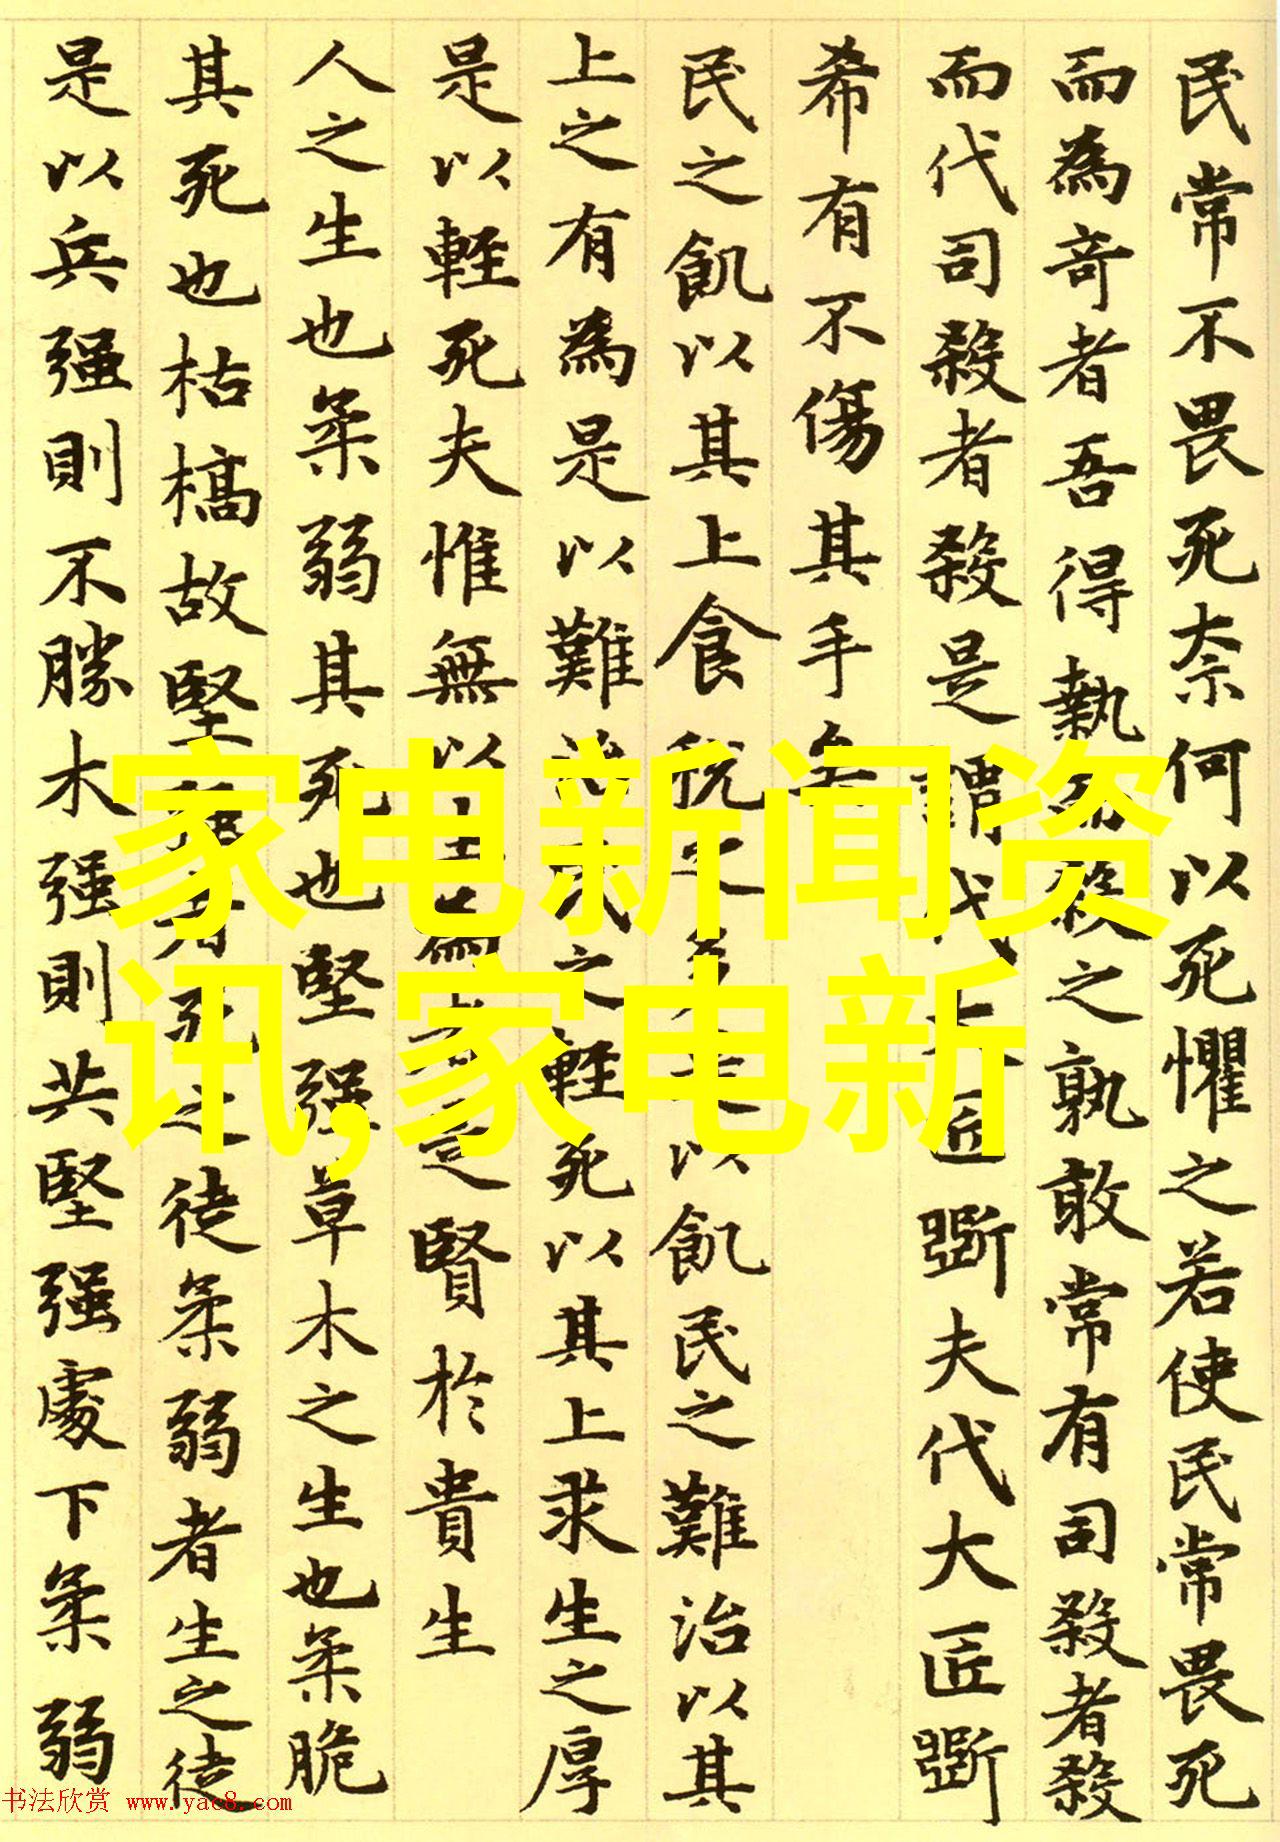 民常不畏死奈何以死懼之若使民常畏死
而為奇者吾得執而殺之孰敢常有司殺者殺
而代司殺者殺是謂代大匠斲夫代大匠斲
希有不傷其手矣
民之飢以其上食稅之多是以飢民之難治以其
上之有為是以難治民之輕死以其上求生之厚
是以輕死夫惟無以生為者是賢於貴生
人之生也柔弱其死也堅强草木之生也柔脆
其死也枯槁故堅强者死之徒柔弱者生之徒
是以兵强則不勝木强則共堅强處下柔弱
家电新闻资
讯,家电新
书法欣赏 www.yac8.com